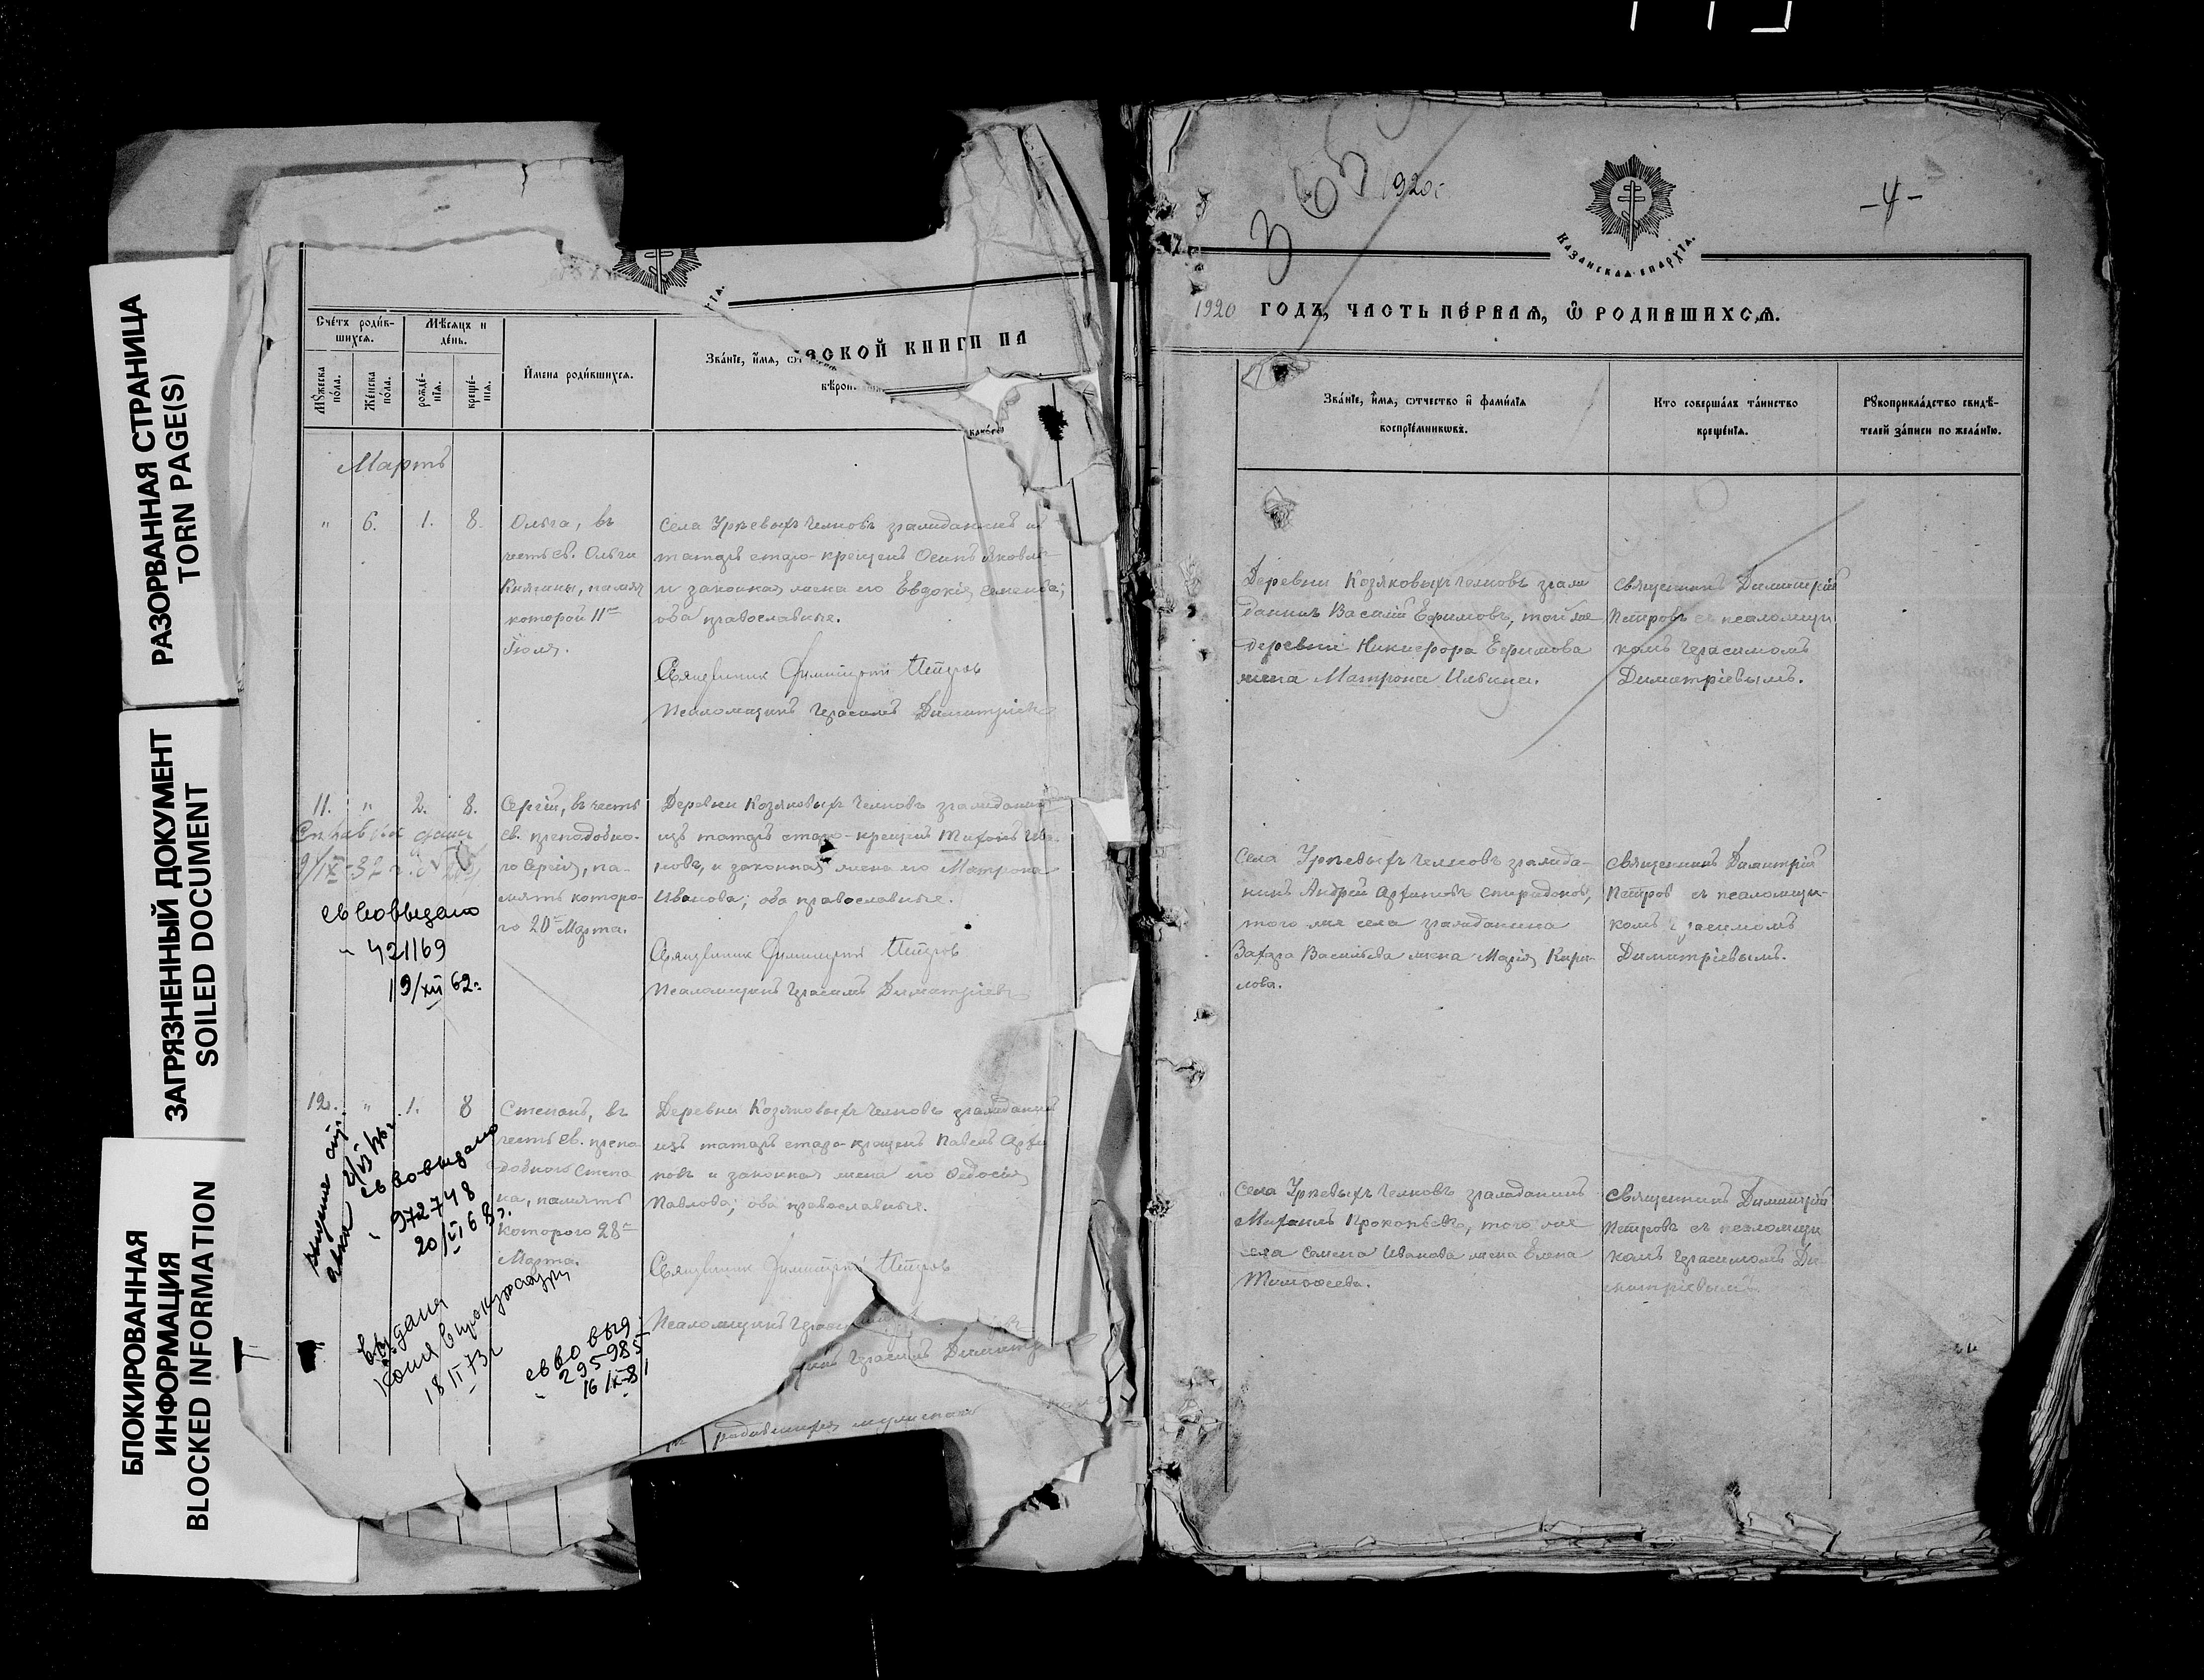 РАЗОРВАННАЯ СТРАНИЦА
TORN PAGE(S)
ЗАГРЯЗНЕННЫЙ ДОКУМЕНТ
SOILED DOCUMENT
БЛОКИРОВАННАЯ
ИНФОРМАЦИЯ
BLOCKED INFORMATION
ЗСКОЙ КНИГИ НА
Счéтъ роди́в-
шихсѧ.
Мѣ́сѧцъ и
де́нь.
Мꙋ́жеска
по́ла.
Же́нска
по́ла.
рожде́-
нїѧ.
креще́-
нїѧ.
И҆мена роди́вшихсѧ.
Зва́нїе, и҆́мѧ,
вѣрои
Мартъ
" 6. 1. 8.
Ольга, въ
честь св. Ольги
Княгины, память
которой 11го
Іюля.
Села Урѣевыхъ Челновъ гражданинъ из
татаръ старо-крещенъ Осипъ Яковле-
и законная жена его Евдокія Семенова;
оба православные.
Священник Димитрій Петров
Псаломщикъ Герасимъ Димитріев
11. " 2. 8.
Сергій, въ честь
св. преподобно-
го Сергія, па-
мять которо-
го 20го Марта.
Деревни Козяковыхъ Челновъ гражданин
изъ татаръ старо-крещенъ Тихонъ Ива-
новъ, и законная жена его Матрона
Иванова; оба православные.
Священник Димитрій Петров
Псаломщикъ Герасимъ Димитріев
Справка дана
9/IX-32 г.
св во выдано
" 421169
19/XII 62г.
12. " 1. 8
Степанъ, въ
честь св. препо
добного Степа
на, память
которого 28го
Марта.
Деревни Козяковыхъ Челновъ гражданинъ
изъ татаръ старо-крещенъ Павелъ Архи
повъ и законная жена его Ѳедосія
Павлова; оба православные.
Священник Димитрій Петров
Псаломщикъ Герасим
св во выдано
" 972748
20/VI 68г.
выдана
копия в прокуратуру
18 II 73 г
св во выд.
" 295985
16 IX-81
Герасимъ Димитр
родившихся мужеска
1920г.
-4-
Каза́нскаѧ є҆па́рхїѧ.
1920 ГОДЪ, ЧАСТЬ ПЕ́РВАѦ, Ѽ РОДИ́ВШИХСѦ.
Зва́нїе, и҆́мѧ, ѻ҆́тчество и҆ фами́лїѧ
воспрїе́мникѡвъ.
Кто совершáлъ та́инство
креще́нїѧ.
Рꙋкоприкла́дство свидѣ́-
телей за́писи по жела́нїю.
Деревни Козяковыхъ Челновъ граж
данинъ Василій Ефимовъ, той же
деревни Никифора Ефимова
жена Матрона Ильина.
Священникъ Димитрій
Петровъ съ псаломщи
комъ Герасимомъ
Димитріевымъ.
Села Урѣевыхъ Челновъ гражда-
нинъ Андрей Архиповъ Спиридонов,
того же села гражданина
Захара Васильева жена Марія Кири-
лова.
Священникъ Димитрій
Петров съ псаломщи-
комъ Герасимомъ
Димитріевымъ.
Села Урѣевыхъ Челновъ гражданинъ
Михаилъ Прокопьевъ, того же
села Семена Иванова жена Елена
Тимоѳеева.
Священникъ Димитрій
Петровъ съ псаломщи
комъ Герасимомъ Ди-
митріевымъ.